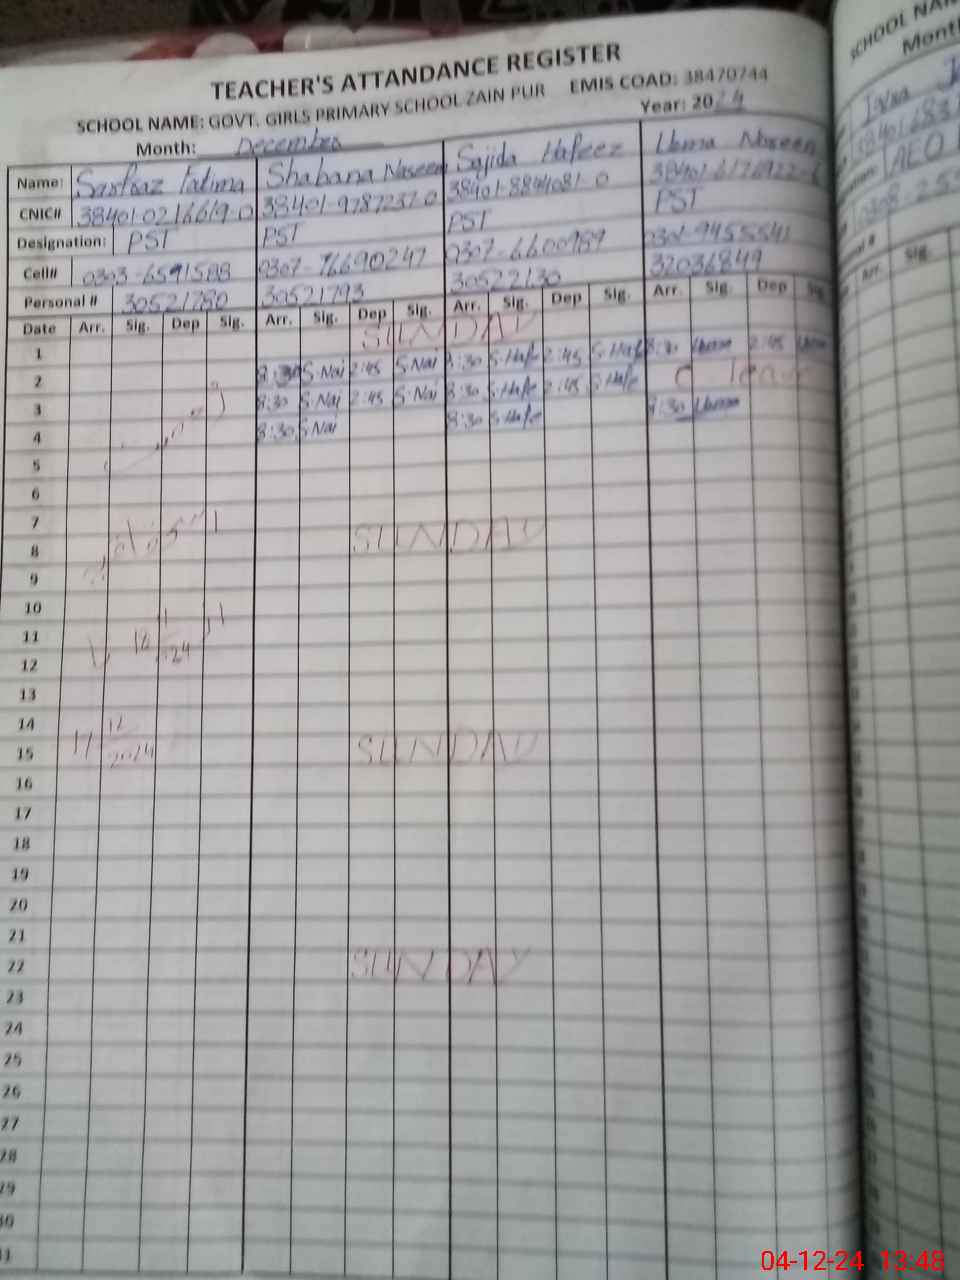 TEACHER'S ATTANDANCE REGISTER
SCHOOL NAME: GOVT. GIRLS PRIMARY SCHOOL ZAIN PUR EMIS COAD: 38470744
Month: December Year: 2024
Name: Sarfraz Fatima Shabana Naseem Sajida Hafeez Uzma Noreen
CNIC# 38401-0216619-0 38401-9787237-0 38401-8844081-0
Designation: PST PST PST PST
Cell# 0303-6591588 0307-76690247 0307-6600989
Personal # 30521780 30521793 30522130 32036849
Date Arr. Sig. Dep Sig. Arr. Sig. Dep Sig. Arr. Sig. Dep Sig. Arr. Sig. Dep
1 SUNDAY
2 8:30 S.Nai 2:45 S.Nai 8:30 S.Hafe 2:45 S.Hafe 8:30 2:45
3 8:30 S.Nai 2:45 S.Nai 8:30 S.Hafe 2:45 S.Hafe C leave
4 8:30 S.Nai 8:30 S.Hafe 8:30
5
6
7
8 SUNDAY
9
10
11
12
13
14
15 SUNDAY
16
17
18
19
20
21
22 SUNDAY
23
24
25
26
27
28
29
30
31
SCHOOL NAM
Month
AEO
Arr. Sig.
04-12-24 13:48